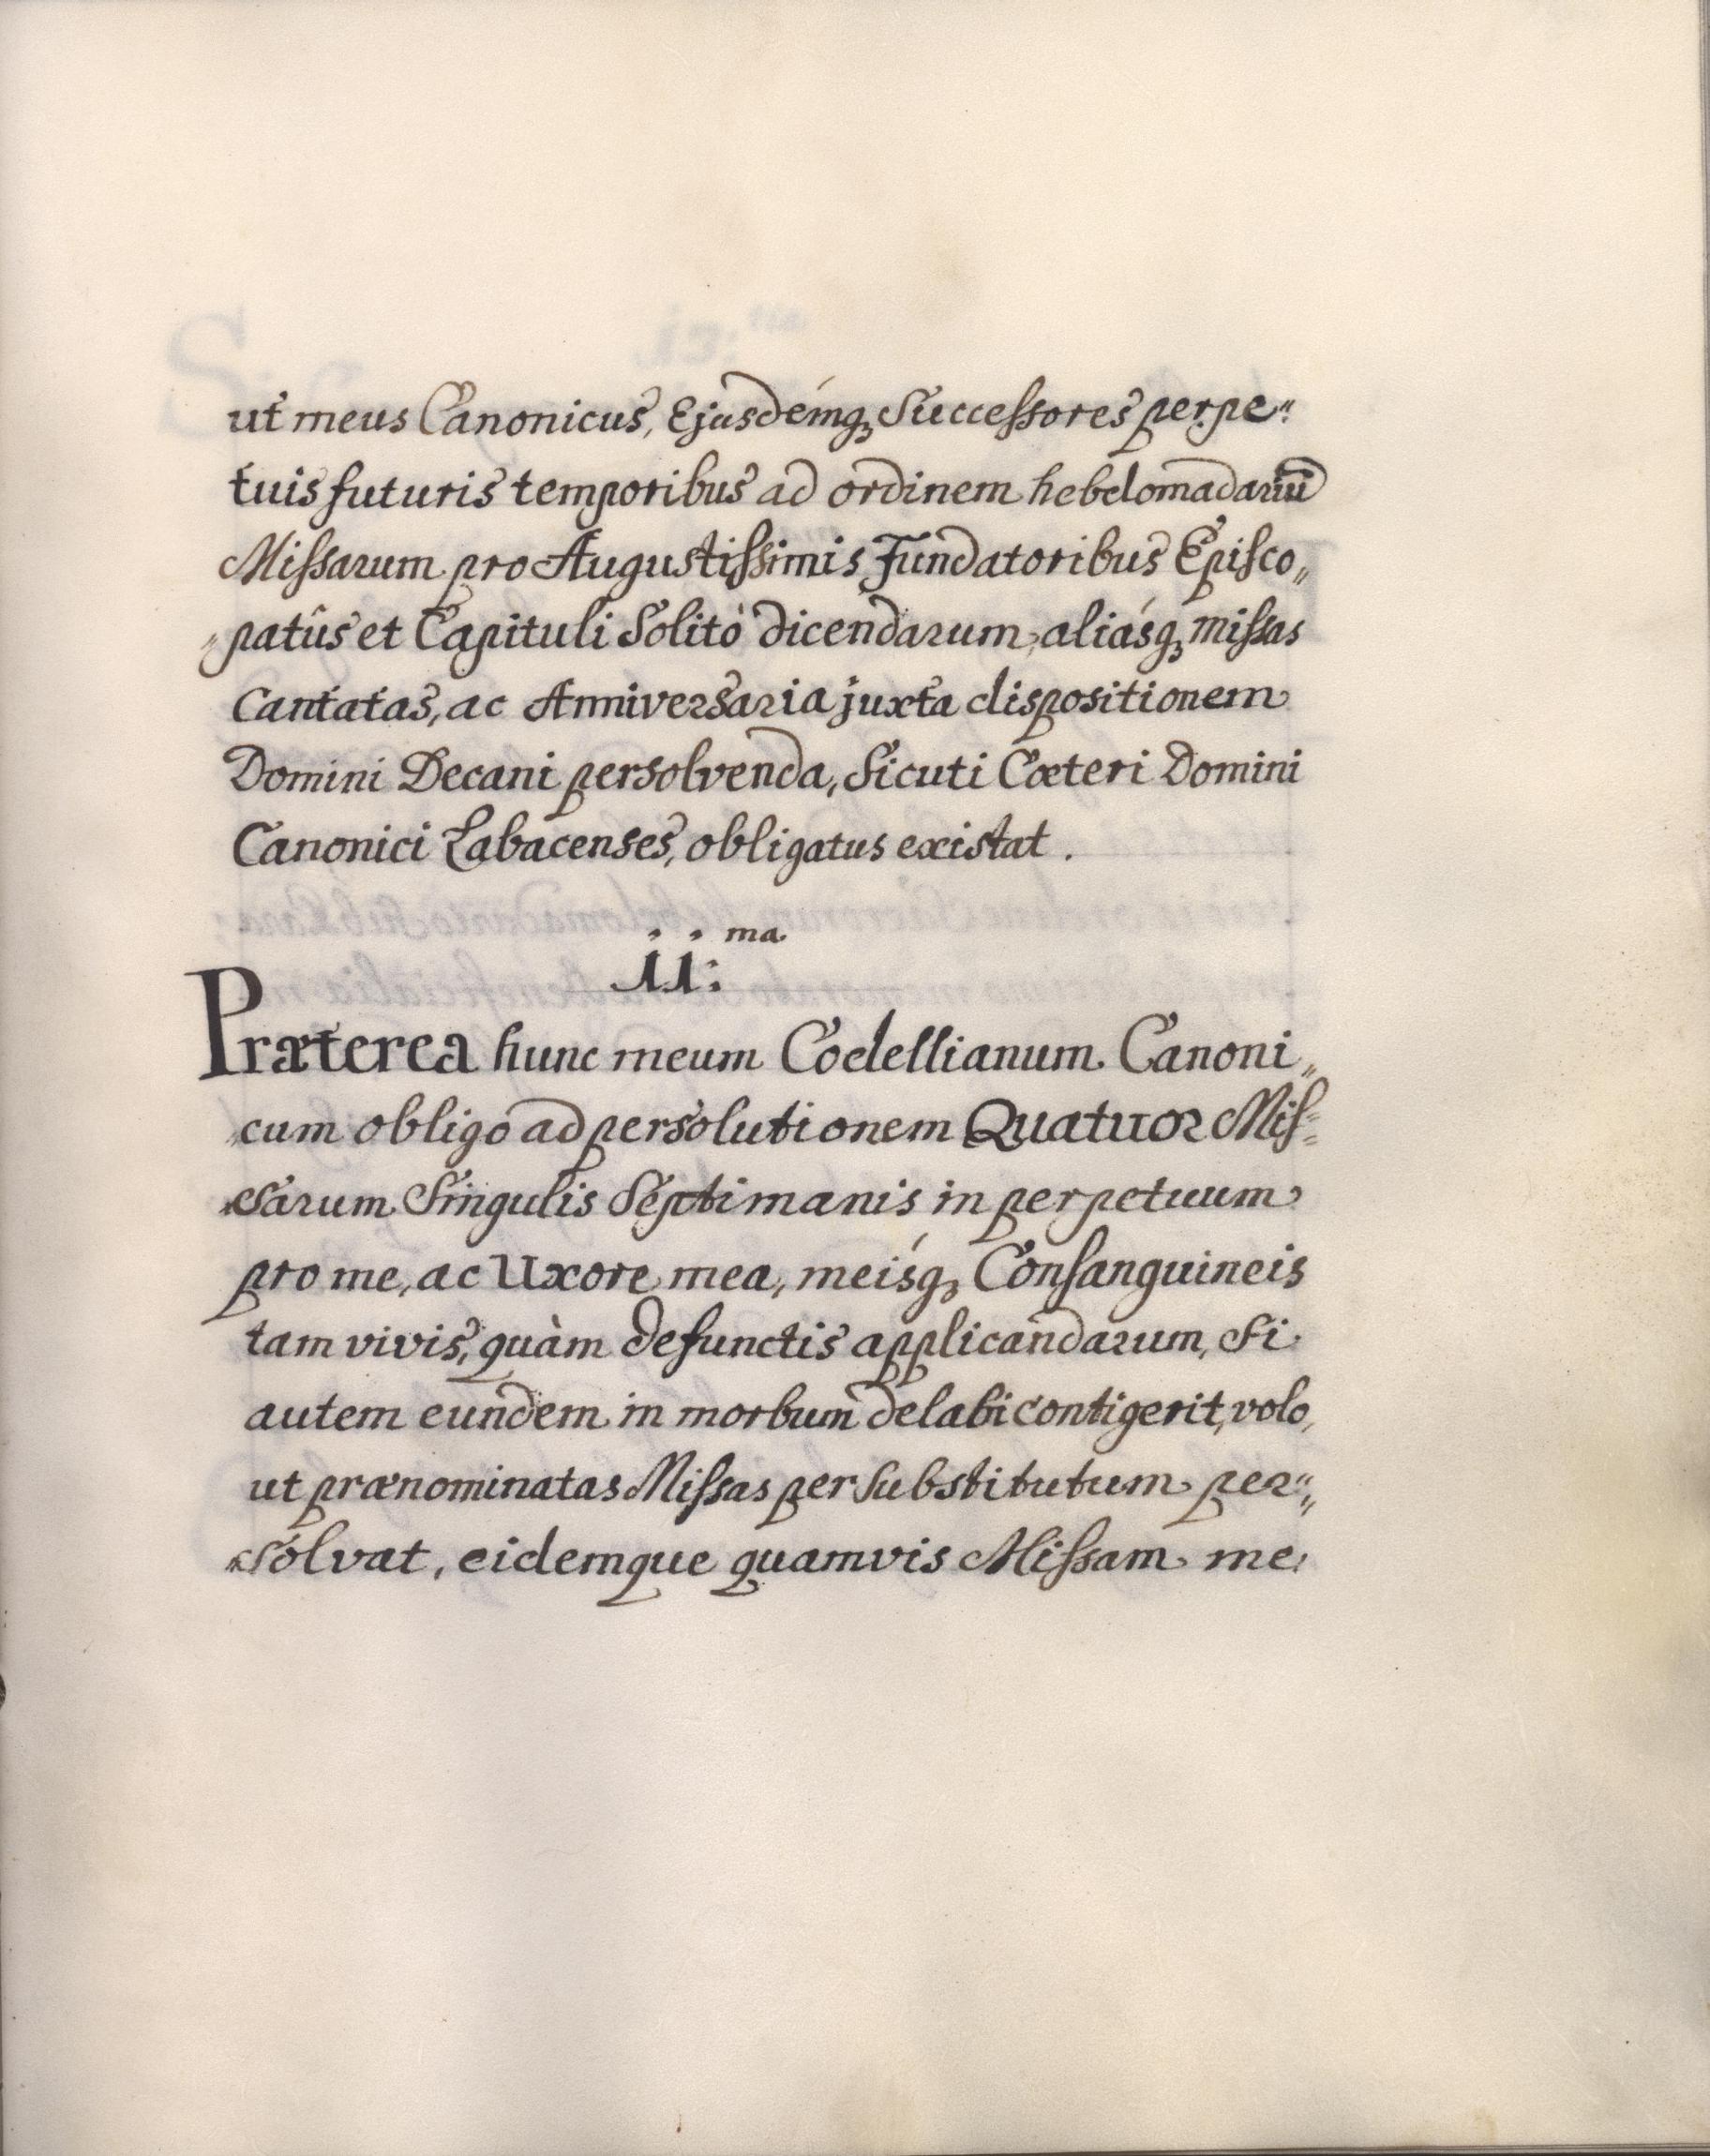 ut meus Canonicus, Ejusdémq₃ Successores perpe„
tuis futuris temporibus ad ordinem hebdomadariū
Missarum pro Augustissimis Fundatoribus Episco„
„patûs et Capituli Solitò dicendarum, aliásq₃ missas
Cantatas, ac Anniversaria juxta dispositionem
Domini Decani persolvenda, Sicuti Cœteri Domini
Canonici Labacenses, obligatus existat.
ii:ma.
Præterea hunc meum Codellianum Canoni„
„cum obligo ad persolutionem Quatuor Mis„
„sarum Singulis Séptimanis in perpetuum
pro me, ac Uxore mea, meísq₃ Consanguineis
tam vivis, quàm defunctis applicandarum, Si
autem eundem in morbum delabi contigerit, volo,
ut prænominatas Missas per Substitutum per„
„solvat, eidemque quamvis Missam me